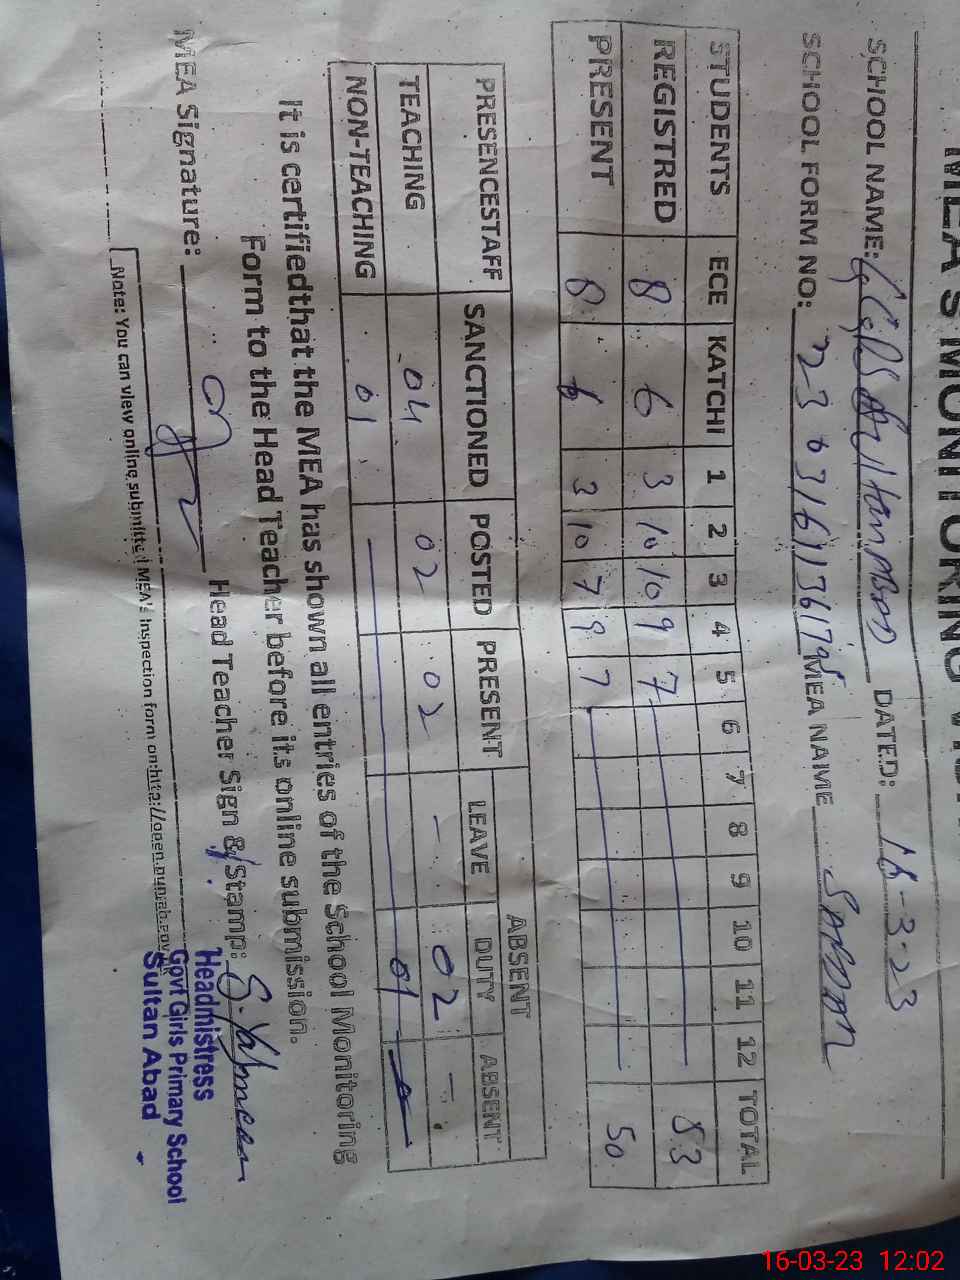 MEA'S MONITORING
SCHOOL NAME: GGPS Sultan Abad DATED: 16-3-23
SCHOOL FORM NO: MEA NAME
STUDENTS ECE KATCHI 1 2 3 4 5 6 7 8 9 10 11 12 TOTAL
REGISTRED 8 6 3 10 10 9 7 53
PRESENT 8 6 3 10 7 9 7 50
ABSENT
PRESENCESTAFF SANCTIONED POSTED PRESENT LEAVE DUTY ABSENT
TEACHING 04 02 02 - 02 -
NON-TEACHING 01 01
It is certifiedthat the MEA has shown all entries of the School Monitoring
Form to the Head Teacher before its online submission.
MEA Signature: Head Teacher Sign & Stamp:
Headmistress
Govt Girls Primary School
Sultan Abad
Note: You can view online submitted MEA's Inspection form on:http://open.punjab.gov
16-03-23 12:02